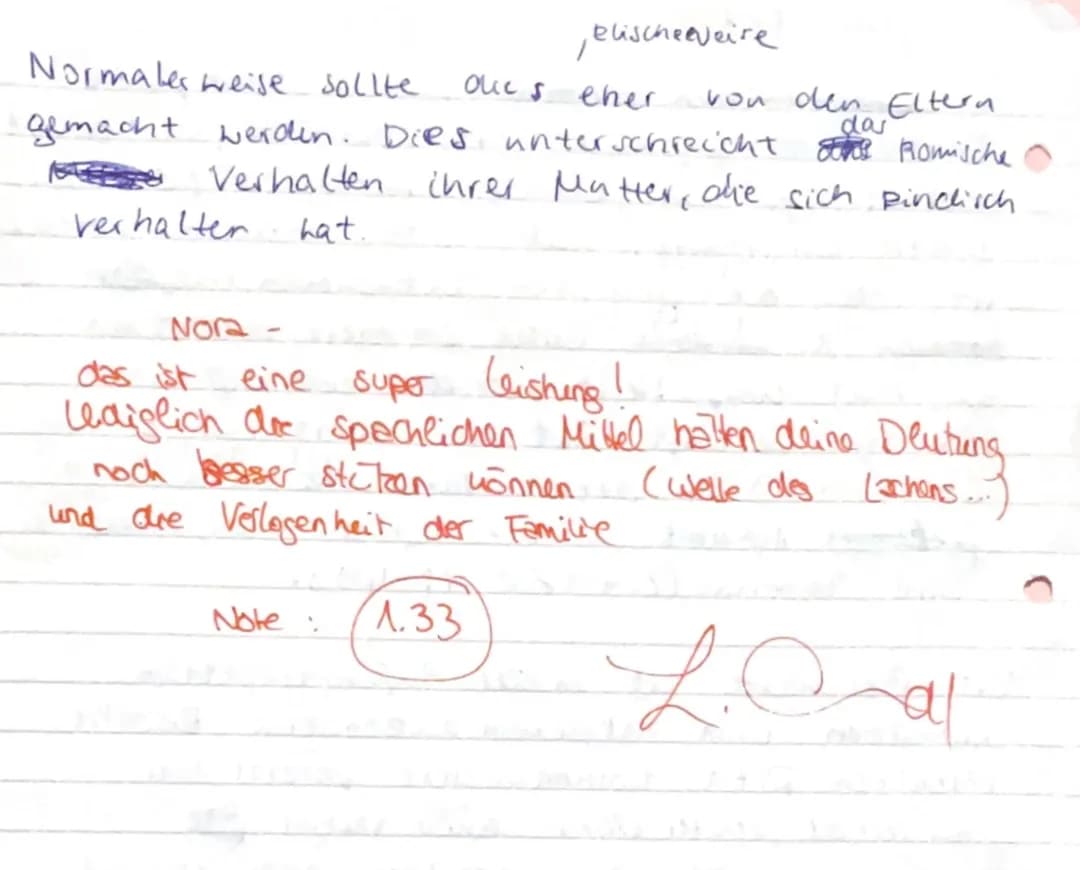 Normalerweise sollte dies eher von den Eltern
gemacht werden. Dies unterschreicht das komische
Verhalten ihrer Mutter, die sich kindisch
verhalten hat.
Nora -
das ist eine super Leistung!
Lediglich die sprachlichen Mittel hätten deine Deutung
noch besser stützen können (Welle des Lachens...)
und die Verlegenheit der Familie
Note : 1.33